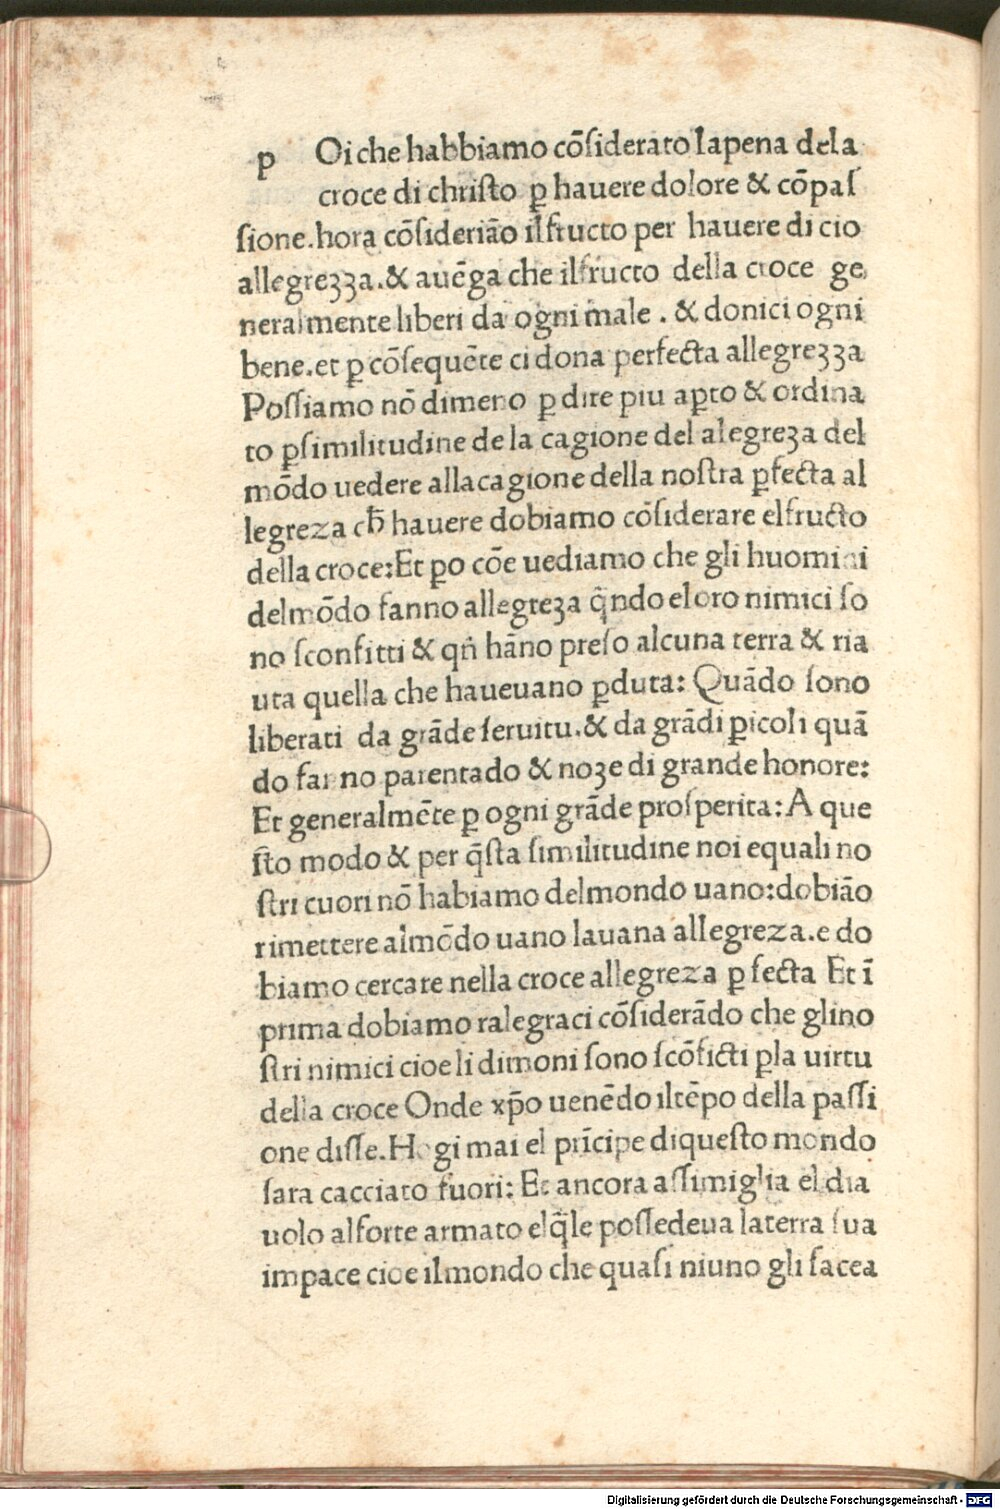 p Oi che habbiamo cōſiderato lapena dela
croce di chriſto ꝑ hauere dolore & cōpaſ
ſione.hora cōſideriāo ilfructo per hauere di cio
allegreʒʒa.& auēga che ilfructo della croce ge
neralmente liberi da ogni male . & donici ogni
bene.et ꝑ cōſequēte ci dona perfecta allegreʒʒa
Poſſiamo nō dimeno ꝑ dire piu aꝑto & ordina
to ꝑſimilitudine de la cagione del alegreʒa del
mōdo uedere allacagione della noſtra ꝑfecta al
legreza cħ hauere dobiamo cōſiderare elfructo
della croce:Et ꝑo cōe uediamo che gli huomini
delmōdo fanno allegreʒa q̄ndo eloro nimici ſo
no ſconfitti & qn̄ hāno preſo alcuna terra & ria
uta quella che haueuano ꝑduta: Quādo ſono
liberati da grāde ſeruitu.& da grādi ꝑicoli quā
do fanno parentado & noʒe di grande honore:
Et generalmēte ꝑ ogni grāde proſperita: A que
ſto modo & per q̄ſta ſimilitudine noi equali no
ſtri cuori nō habiamo delmondo uano:dobiāo
rimettere almōdo uano lauana allegreza.e do
biamo cercare nella croce allegreza ꝑ fecta Et ī
prima dobiamo ralegraci cōſiderādo che glino
ſtri nimici cioe li dimoni ſono ſcōficti ꝑla uirtu
della croce Onde xp̄o uenēdo iltēpo della paſſi
one diſſe.Hogi mai el prīcipe diqueſto mondo
ſara cacciato fuori: Et ancora aſſimiglia el dia
uolo alforte armato elq̄le poſſedeua laterra ſua
impace cioe ilmondo che quaſi niuno gli facea
Digitalisierung gefördert durch die Deutsche Forschungsgemeinschaft - DFG